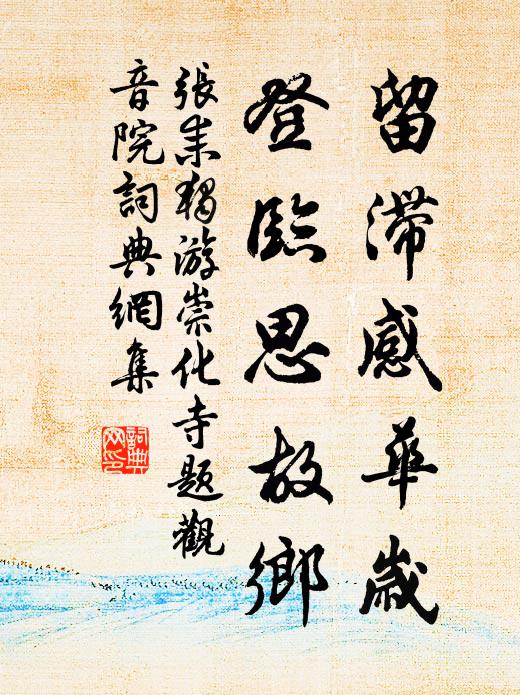 留滯感華歲
登臨思故鄉
張耒獨游崇化寺題觀
音院詞典網集
詞典